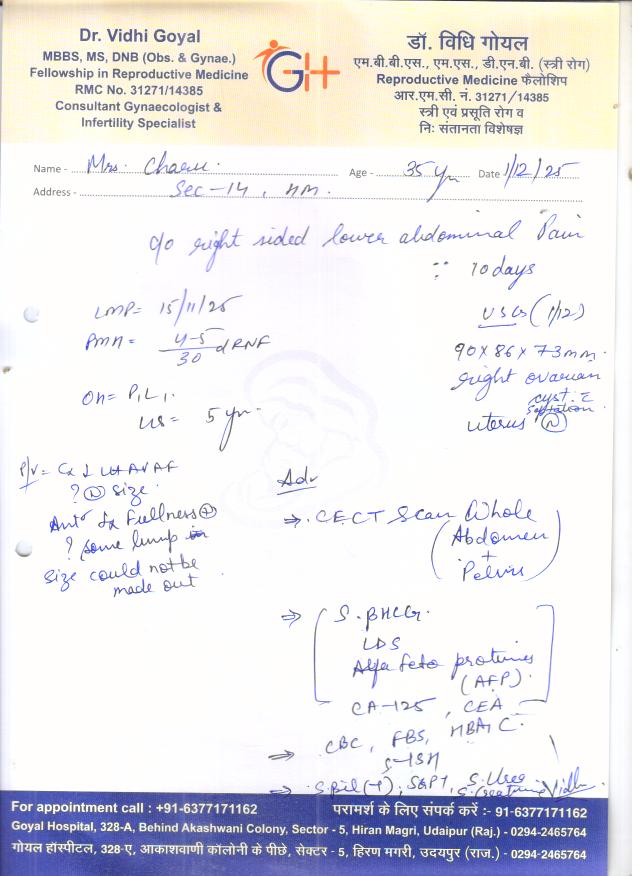 Dr. Vidhi Goyal
MBBS, MS, DNB (Obs. & Gynae.)
Fellowship in Reproductive Medicine
RMC No. 31271/14385
Consultant Gynaecologist &
Infertility Specialist
GH
डॉ. विधि गोयल
एम.बी.बी.एस., एम.एस., डी.एन.बी. (स्त्री रोग)
Reproductive Medicine फैलोशिप
आर.एम.सी. नं. 31271/14385
स्त्री एवं प्रसूति रोग व
निः संतानता विशेषज्ञ
Name - Mrs. Charu. Age - 35 yr Date 1/12/25
Address - Sec-14, HM.
c/o right sided lower abdominal Pain
∵ 10 days
LMP = 15/11/25
PMH = 4-5/30 d RNF
OH = P1L1.
LIS = 5 yr.
USG (1/12)
90 x 86 x 73 mm.
right ovarian
cyst c̅
septation.
uterus (N)
P/V = Cx ↓ Ut AVAF
? (N) size.
Antr fx Fullness (+)
? some lump
size could not be
made out
Adv
⇒ CECT Scan Whole
(Abdomen
+
Pelvis)
⇒ S. βHCG.
LDS
Alfa feto proteines
(AFP).
CA-125, CEA
⇒ CBC, FBS, HBA1C.
S-TSH
⇒ S Bil (T), SGPT, S. Urea
S. Creatinine Vidhi
For appointment call : +91-6377171162
परामर्श के लिए संपर्क करें :- 91-6377171162
Goyal Hospital, 328-A, Behind Akashwani Colony, Sector - 5, Hiran Magri, Udaipur (Raj.) - 0294-2465764
गोयल हॉस्पीटल, 328-ए, आकाशवाणी कॉलोनी के पीछे, सेक्टर - 5, हिरण मगरी, उदयपुर (राज.) - 0294-2465764